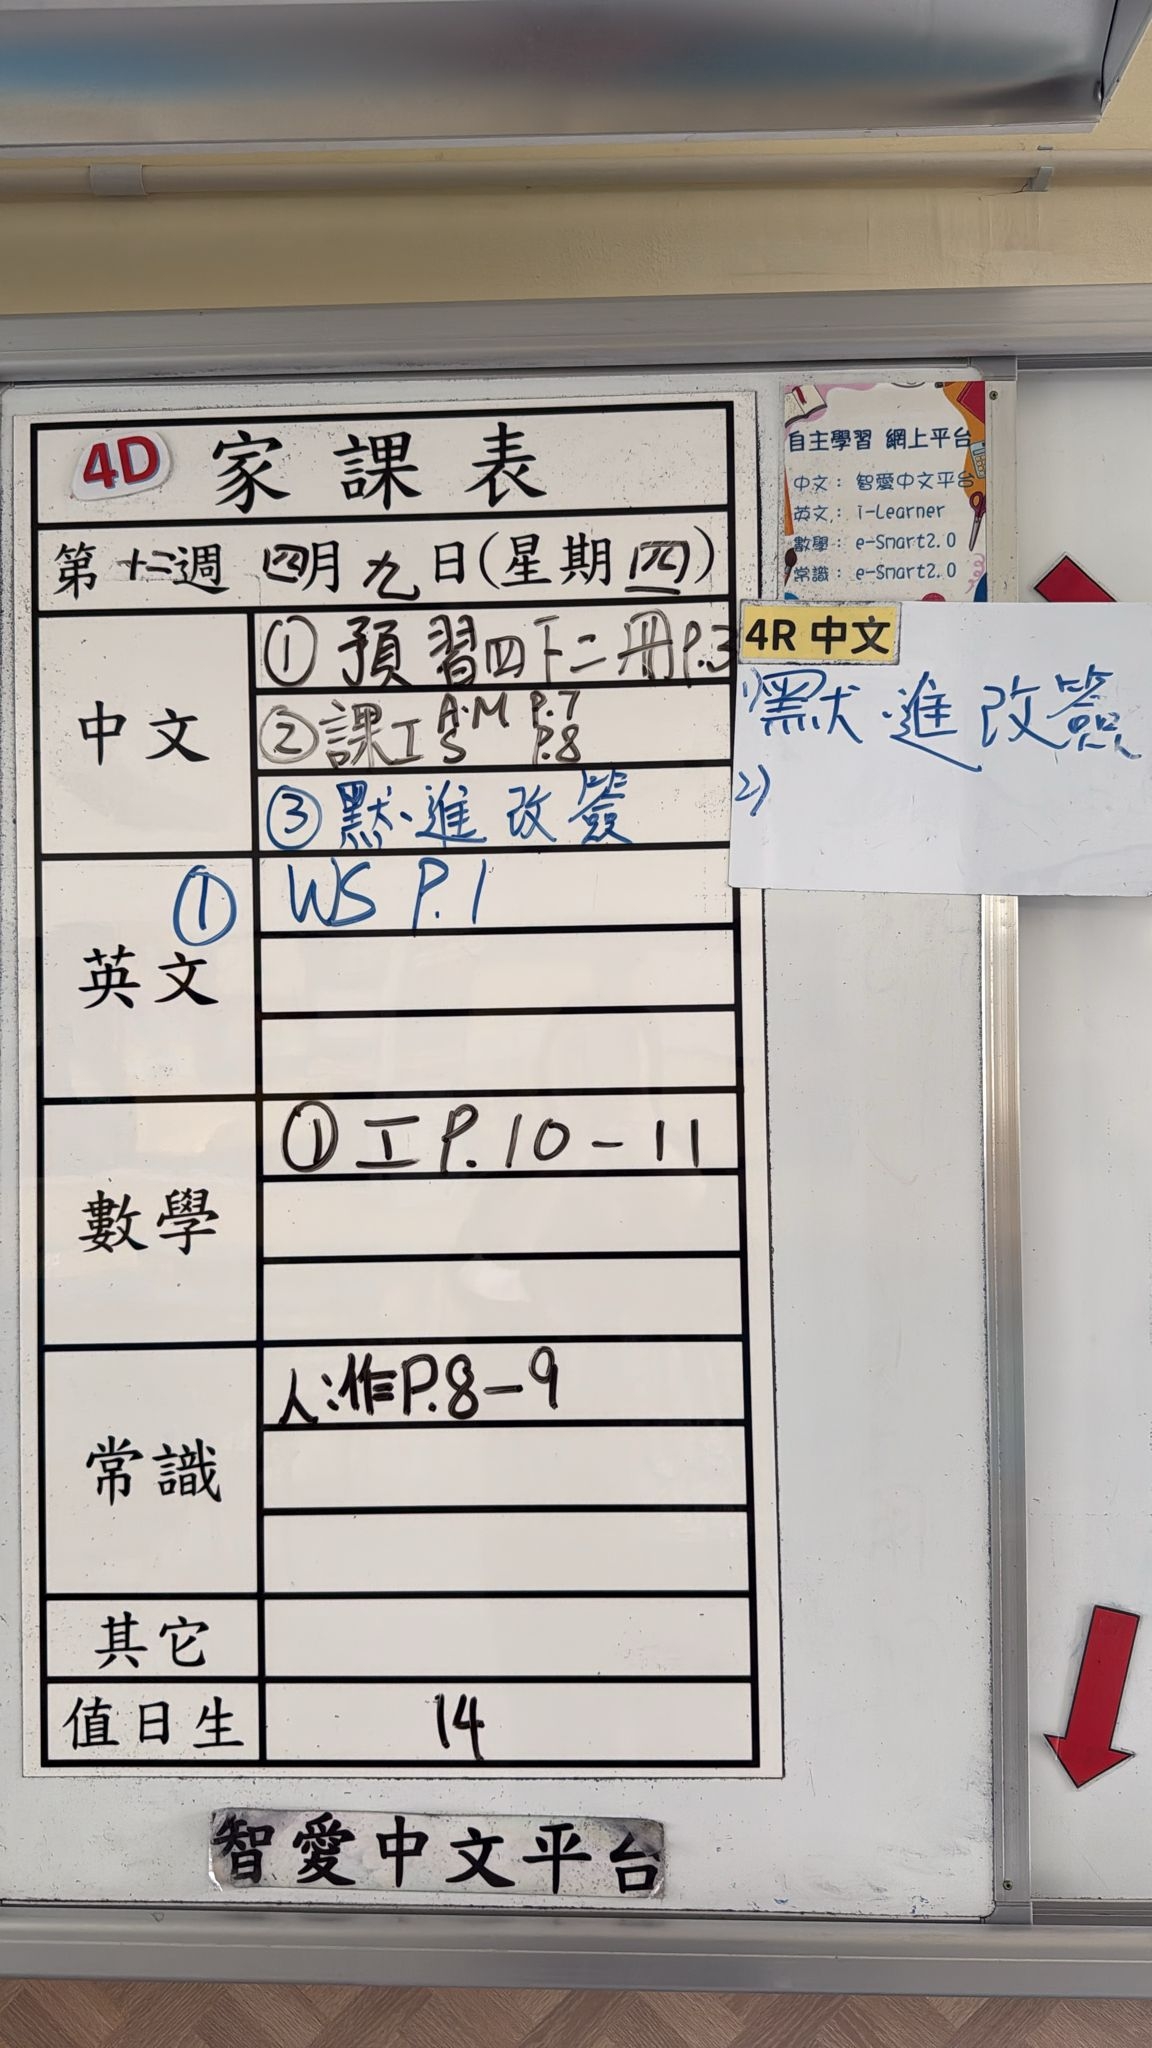 4D 家課表
第十二週 四月九日(星期四)
中文
① 預習四下二冊P.3
② 課工 A.M P.7
S P.8
③ 默.進改簽
英文
① WS P.1
數學
① 工 P.10-11
常識
人:作P.8-9
其它
值日生 14
智愛中文平台
自主學習 網上平台
中文: 智愛中文平台
英文: i-Learner
數學: e-Smart2.0
常識: e-Smart2.0
4R 中文
1) 默.進改簽
2)